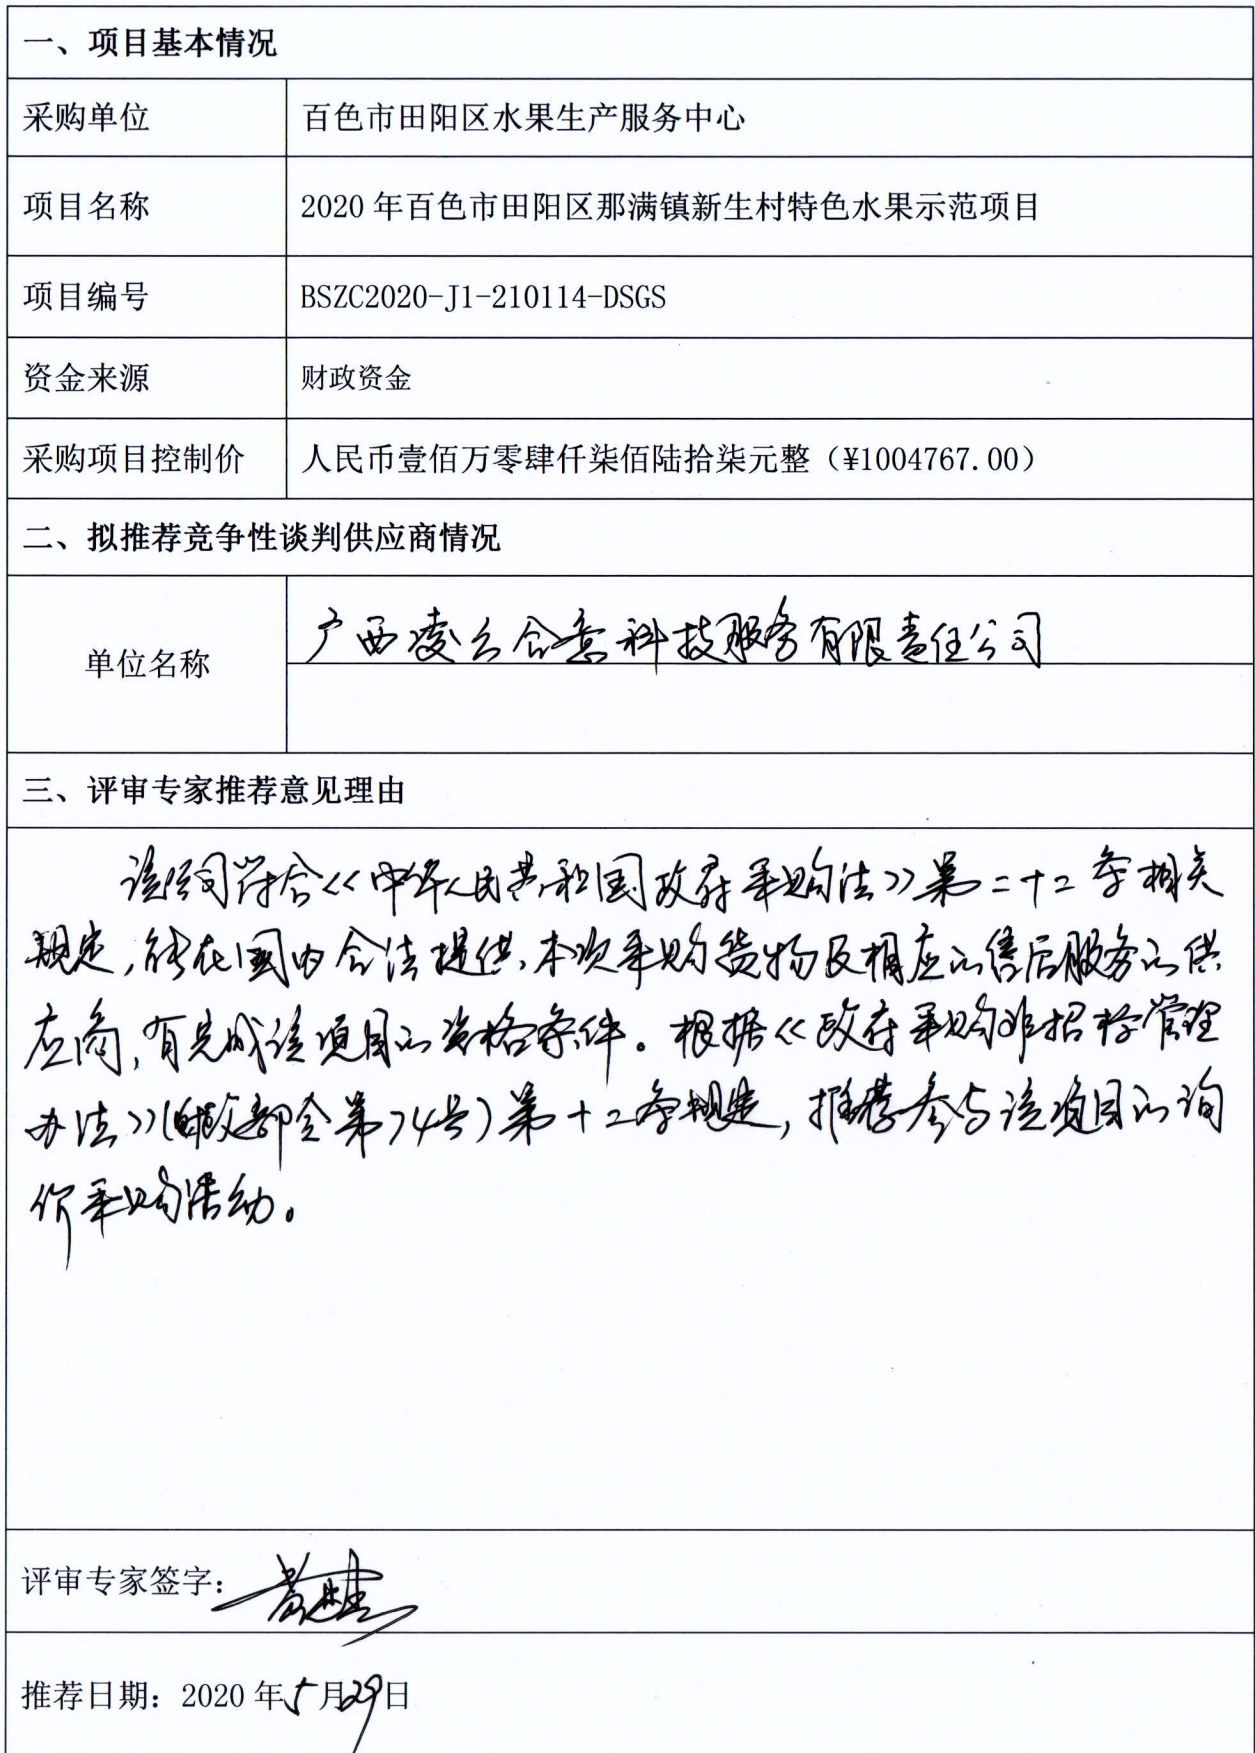 一、项目基本情况
采购单位 百色市田阳区水果生产服务中心
项目名称 2020年百色市田阳区那满镇新生村特色水果示范项目
项目编号 BSZC2020-J1-210114-DSGS
资金来源 财政资金
采购项目控制价 人民币壹佰万零肆仟柒佰陆拾柒元整（¥1004767.00）
二、拟推荐竞争性谈判供应商情况
广西凌云合意科技服务有限责任公司
单位名称
三、评审专家推荐意见理由
该公司符合《中华人民共和国政府采购法》第二十二条相关
规定,能在国内合法提供本次采购货物及相应的售后服务的供
应商,有完成该项目的资格条件。根据《政府采购非招标管理
办法》(财政部令第74号)第十二条规定,推荐参与该项目的询
价采购活动。
评审专家签字：黄
推荐日期：2020年5月29日